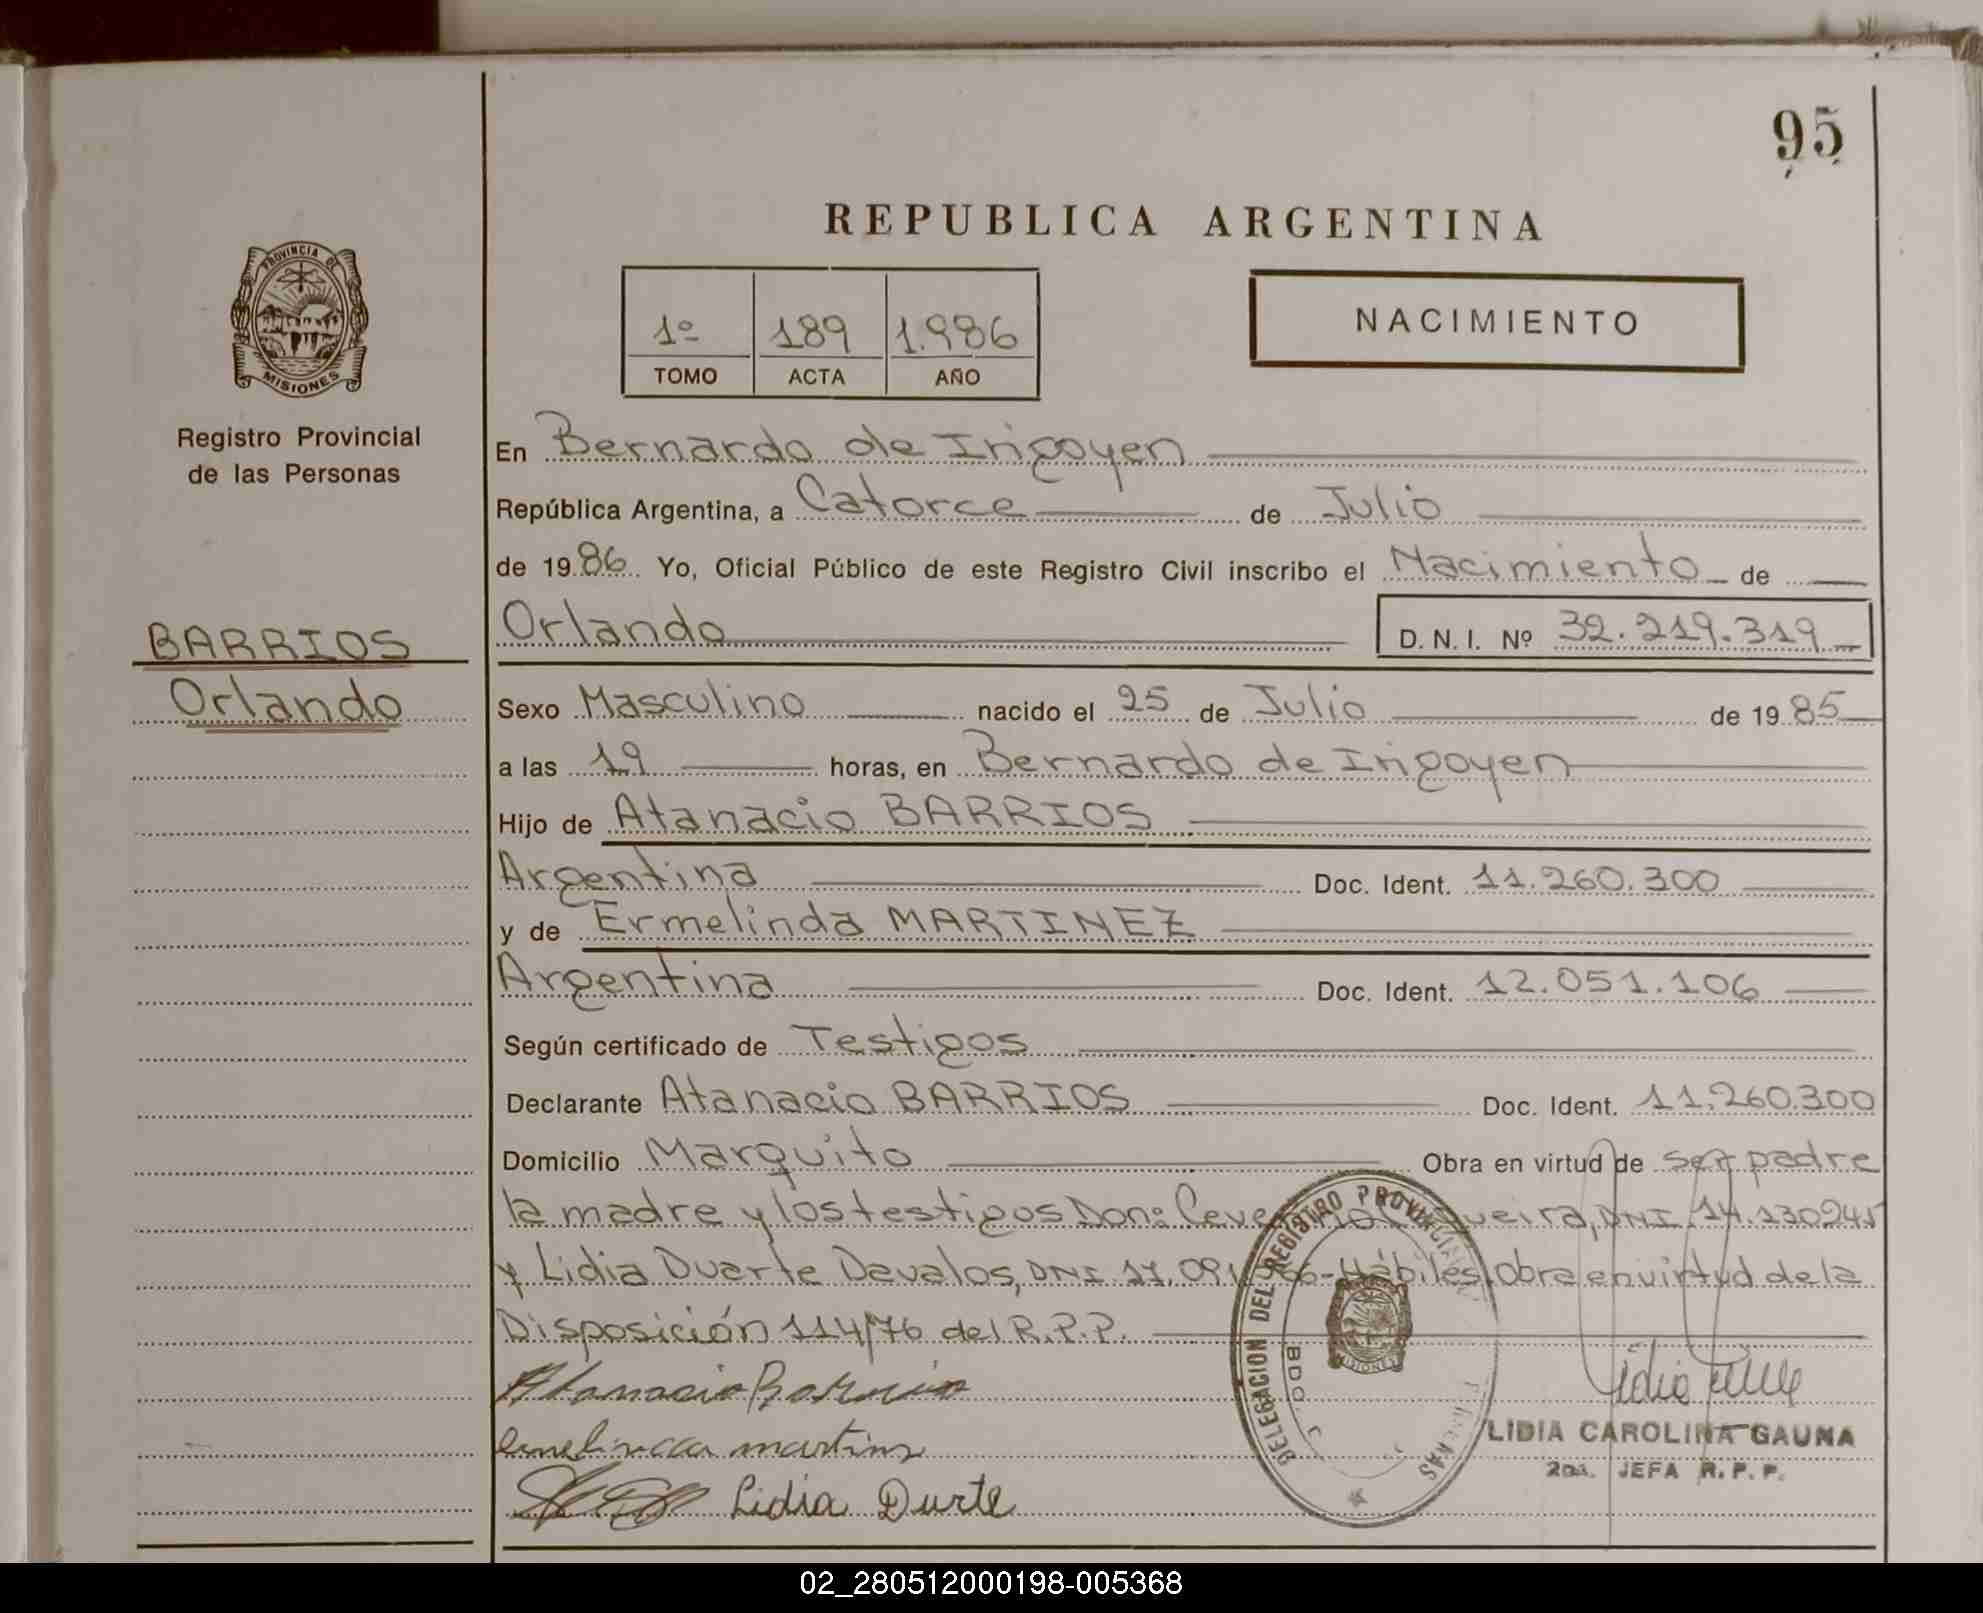 95
REPUBLICA ARGENTINA
PROVINCIA DE
MISIONES
Registro Provincial
de las Personas
1º 189 1.986
TOMO ACTA AÑO
NACIMIENTO
En Bernardo de Irigoyen
República Argentina, a Catorce de Julio
de 1986 Yo, Oficial Público de este Registro Civil inscribo el Nacimiento de
BARRIOS
Orlando
Orlando D.N.I. Nº 32.219.319
Sexo Masculino nacido el 25 de Julio de 1985
a las 19 horas, en Bernardo de Irigoyen
Hijo de Atanacio BARRIOS
Argentina Doc. Ident. 11.260.300
y de Ermelinda MARTINEZ
Argentina Doc. Ident. 12.051.106
Según certificado de Testigos
Declarante Atanacio BARRIOS Doc. Ident. 11.260.300
Domicilio Marquito Obra en virtud de ser padre
la madre y los testigos Don: DNI. 14.130245
y Lidia Duarte Davalos, DNI. Hábiles, Obra en virtud de la
Disposición 114/76 del R.P.P.
Atanacio Barrios
martins
Lidia Durte
DELEGACION DEL REGISTRO PROVINCIAL
BDO
MISIONES
Lidia
LIDIA CAROLINA GAUNA
2da. JEFA R.P.P.
02_280512000198-005368